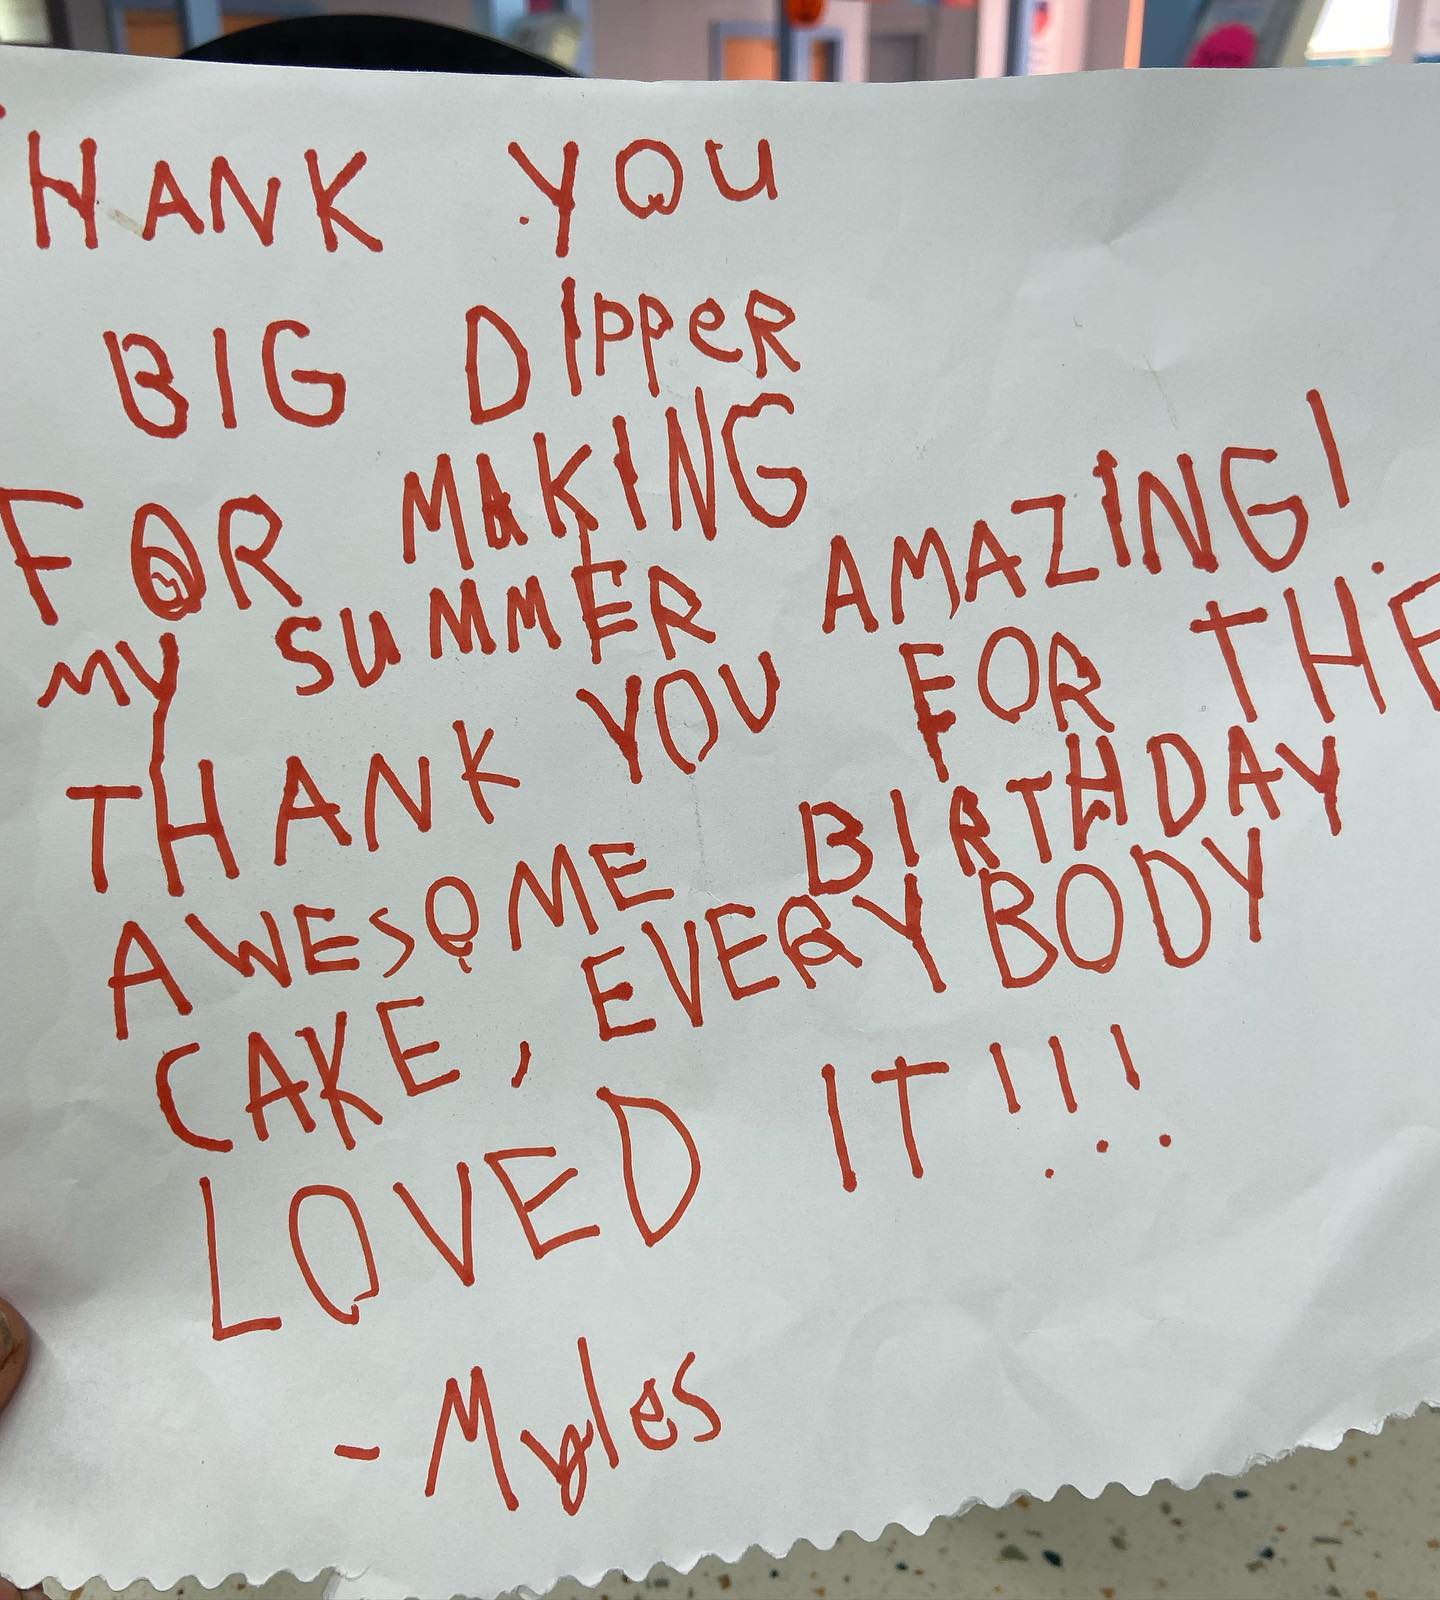 THANK YOU
BIG DIPPeR
FOR MAKING
MY SUMMER AMAZING!
THANK YOU FOR THE
AWESOME BIRTHDAY
CAKE, EVERYBODY
LOVED IT!!!
- Myles